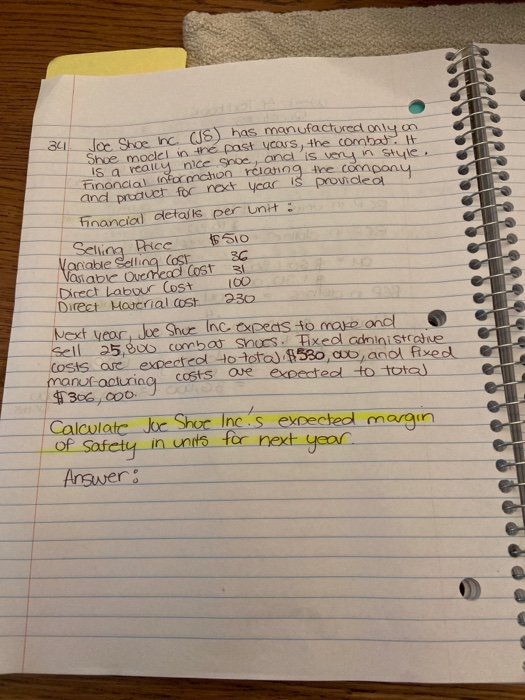 341 Joe Shoe Inc. (JS) has manufactured only on
Shoe model in the past years, the combat. It
is a really nice shoe, and is very n style.
Financial information relating the company
and product for next year is provided
Financial details per unit :
Selling Price $510
Variable Selling Cost 36
Variable Overhead Cost 31
Direct Labour Cost 100
Direct Material Cost 230
Next year, Joe Shoe Inc expects to make and
sell 25,800 combat shoes. Fixed administrative
costs are expected to total $580,000, and fixed
manufacturing costs are expected to total
$306,000.
Calculate Joe Shoe Inc.'s expected margin
of safety in units for next year.
Answer :